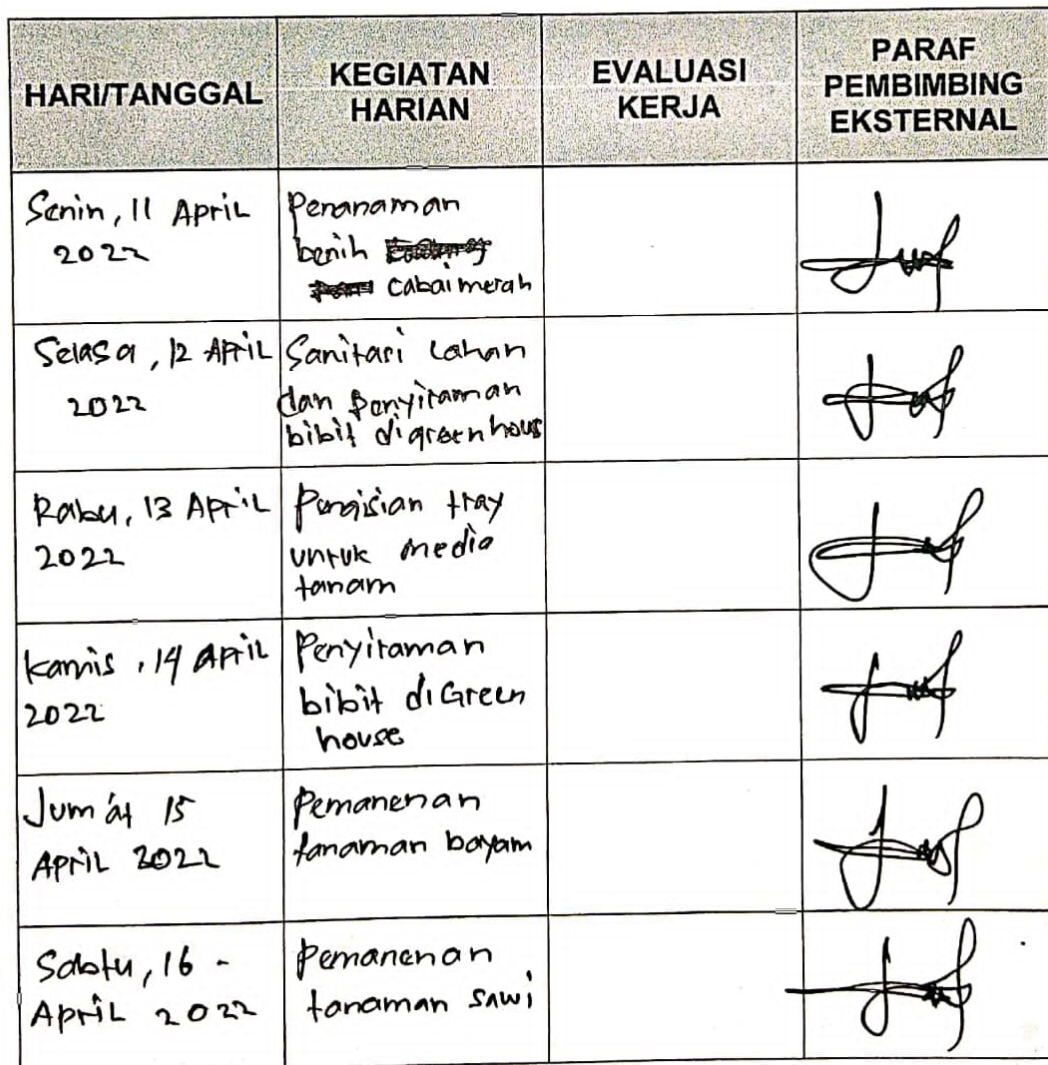 HARI/TANGGAL
KEGIATAN
HARIAN
EVALUASI
KERJA
PARAF
PEMBIMBING
EKSTERNAL
Senin, 11 April
2022
Penanaman
benih
cabai merah
Selasa, 12 April
2022
Sanitasi Lahan
dan Penyiraman
bibit digreenhous
Rabu, 13 April
2022
Pengisian tray
untuk media
tanam
Kamis, 14 April
2022
Penyiraman
bibit diGreen
house
Jum'at 15
April 2022
Pemanenan
tanaman bayam
Sabtu, 16 -
April 2022
Pemanenan
tanaman sawi